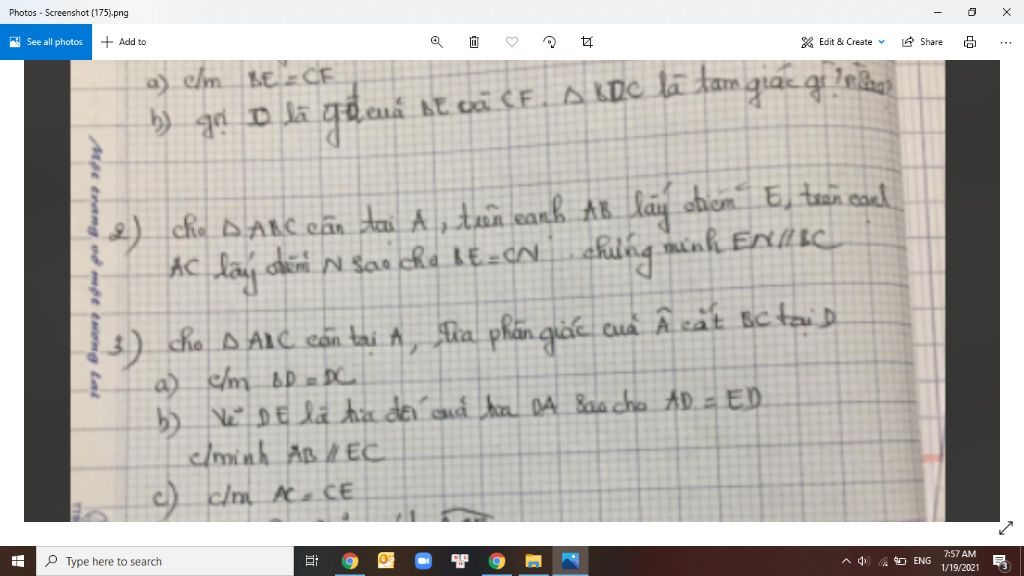 Photos - Screenshot (175).png
See all photos
Add to
Edit & Create
Share
a) c/m BE = CF
b) gọi D là gđ cuả BE và CF. Δ BDC là tam giác gì?
Một trang vở một tương lai
2) cho Δ ABC cân tại A, trên cạnh AB lấy điểm E, trên cạnh
AC lấy điểm N sao cho BE = CN. chứng minh EN // BC
3) cho Δ ABC cân tại A, Tia phân giác cuả Â cắt BC tại D
a) c/m BD = DC
b) Vẽ DE là tia đối cuả tia DA sao cho AD = ED
c/minh AB // EC
c) c/m AC = CE
Type here to search
ENG
7:57 AM
1/19/2021
3